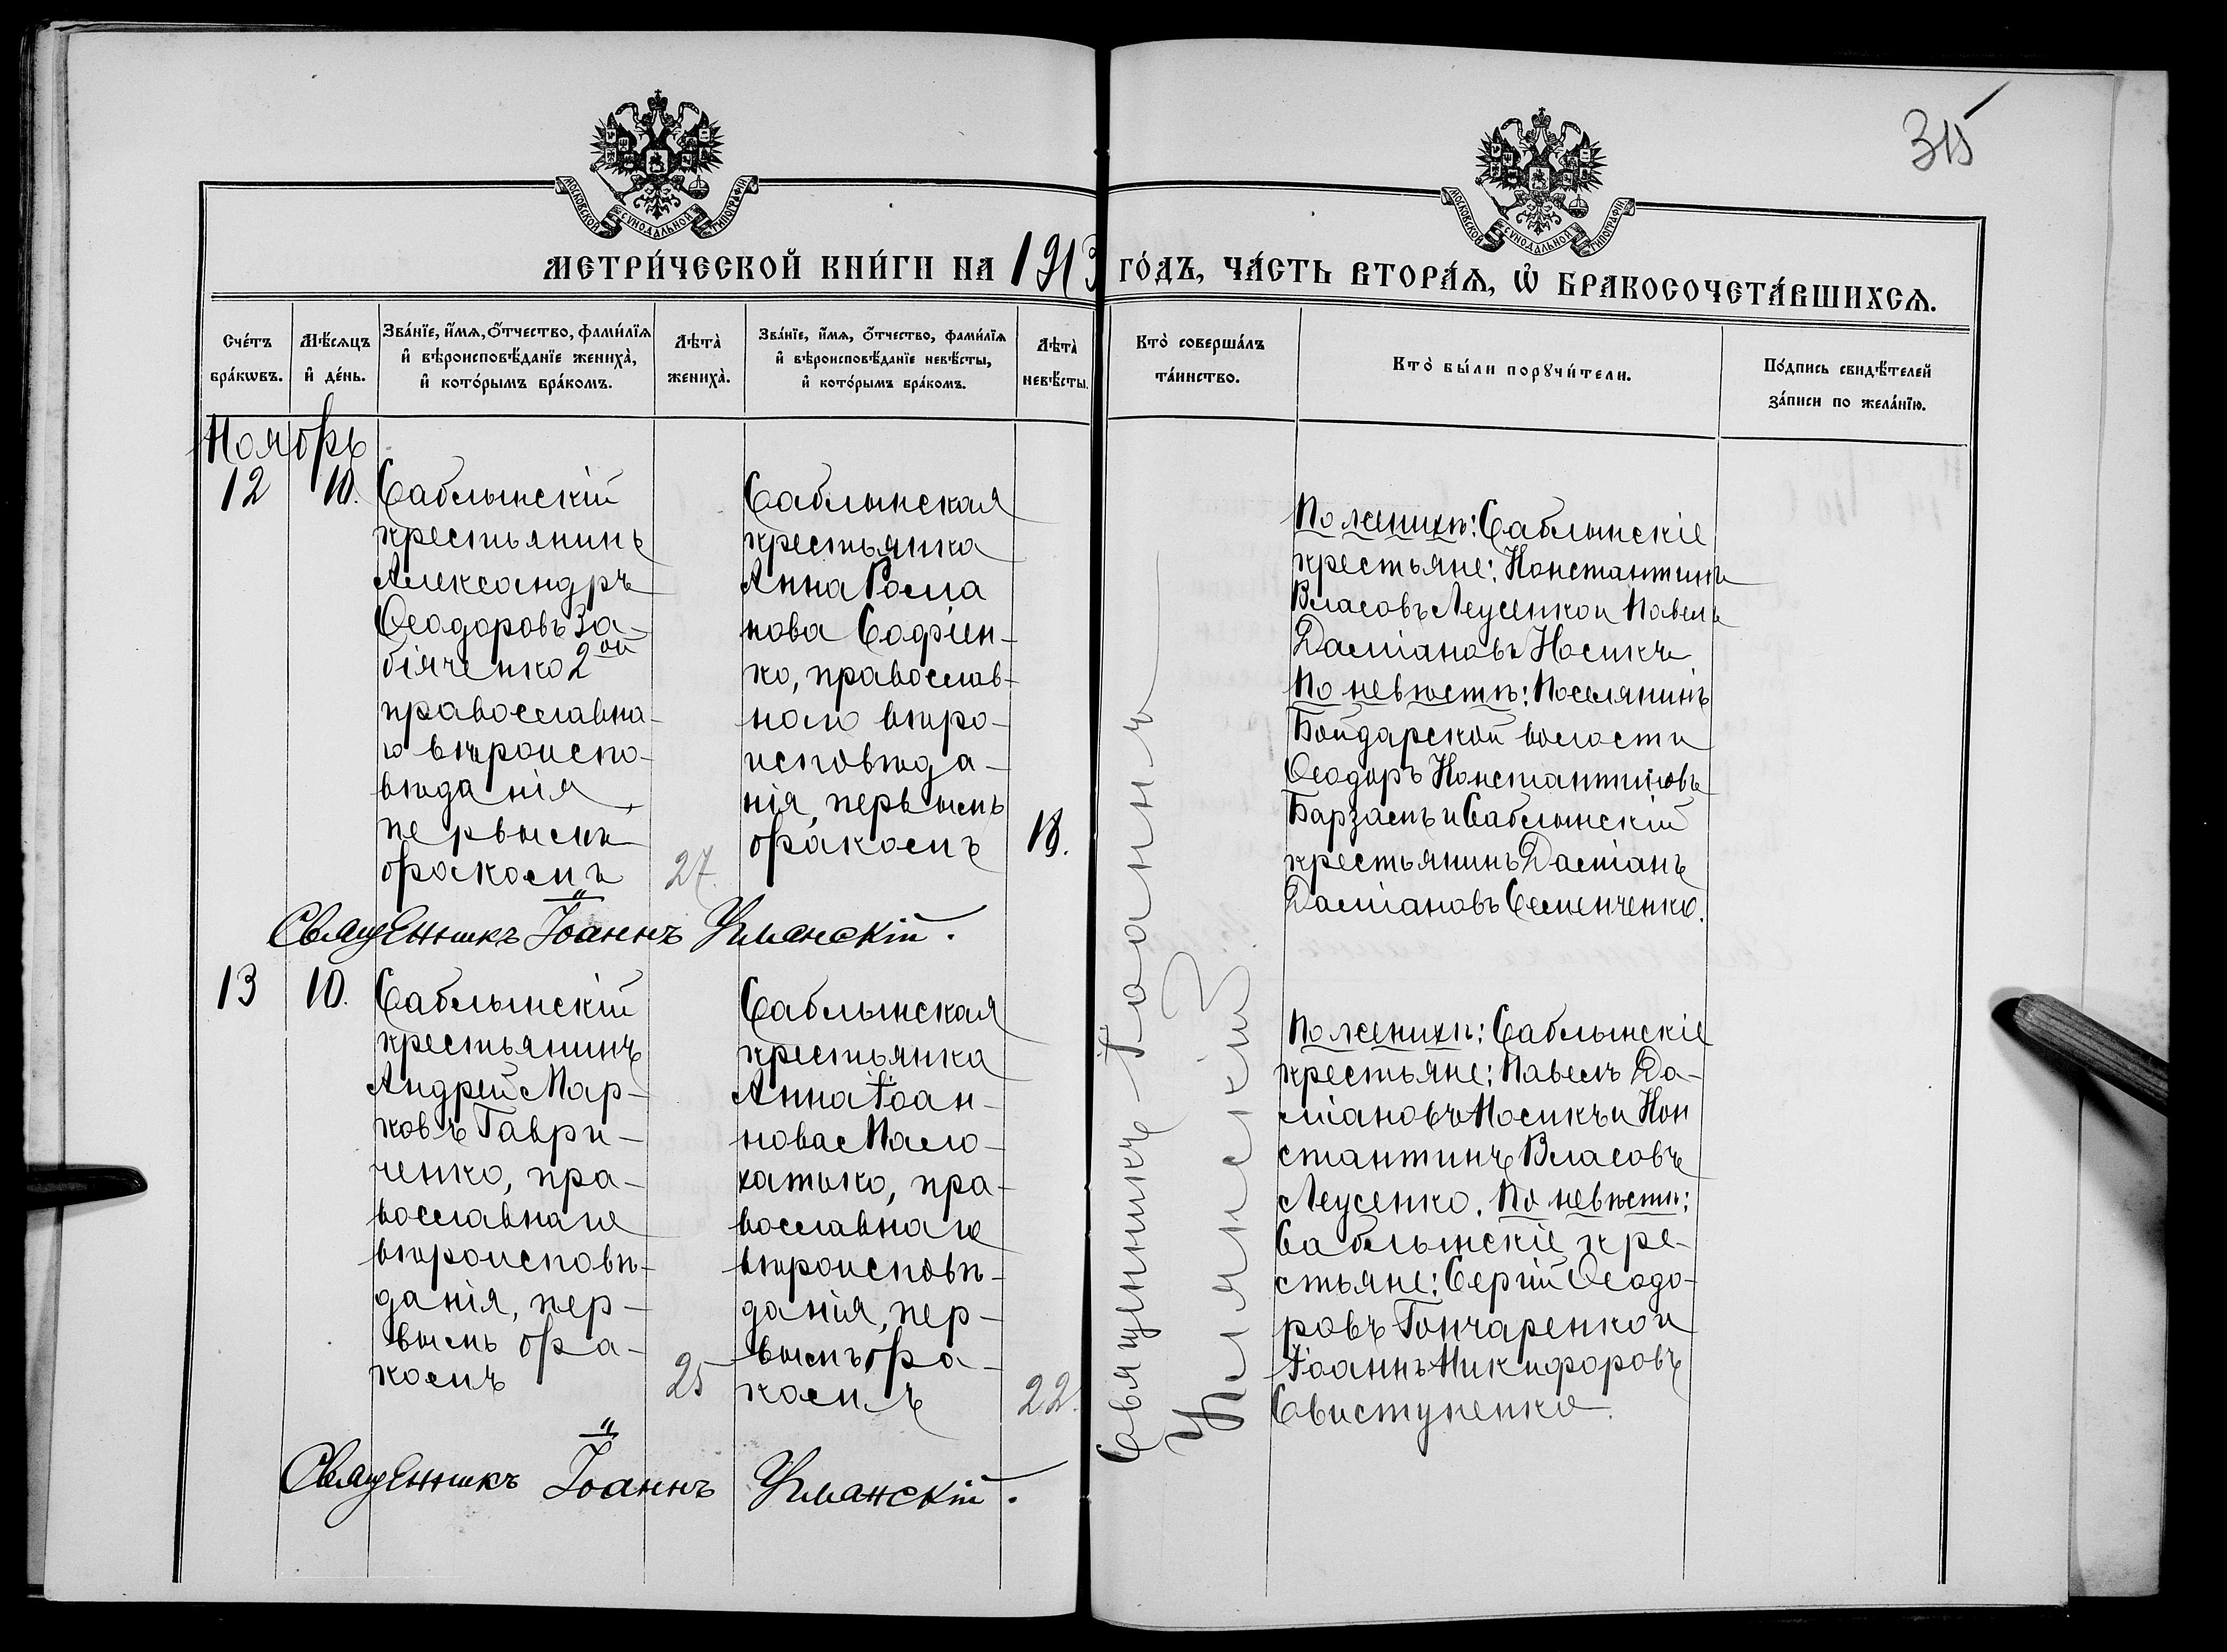 315
МОСКОВСКОЙ СѴНОДАЛЬНОЙ ТИПОГРАФІИ
МОСКОВСКОЙ СѴНОДАЛЬНОЙ ТИПОГРАФІИ
МЕТРИ́ЧЕСКОЙ КНИ́ГИ НА 1913 ГО́ДЪ, ЧА́СТЬ ВТОРА́Ѧ, Ѽ БРАКОСОЧЕТА́ВШИХСѦ.
Сче́тъ
бра́кѡвъ.
Мѣ́сѧцъ
и҆ де́нь.
Зва́нїе, и҆́мѧ, ѻ҆́тчество, фами́лїѧ
и҆ вѣроисповѣ́данїе жениха̀,
и҆ кото́рымъ бра́комъ.
Лѣта̀
жениха̀.
Зва́нїе, и҆́мѧ, ѻ҆́тчество, фами́лїѧ
и҆ вѣроисповѣ́данїе невѣ́сты,
и҆ кото́рымъ бра́комъ.
Лѣта̀
невѣ́сты.
Кто̀ соверша́лъ
та́инство.
Кто̀ бы́ли порꙋчи́тели.
По́дпись свидѣ́телей
за́писи по жела́нїю.
Ноябрь
12
10.
Саблынскій
крестьянинъ
Александръ
Ѳеодоровъ За-
біяченко 2ой
православна-
го вѣроиспо-
вѣданія,
первымъ
бракомъ
27.
Саблынская
крестьянка
Анна Рома
нова Софіен-
ко, православ-
наго вѣро-
исповѣда-
нія, первымъ
бракомъ
18.
Священникъ Іоаннъ
Уманскій
По женихѣ: Саблынскіе
крестьяне: Константинъ
Власовъ Леусенко и Павелъ
Даміановъ Носикъ
По невѣстѣ: Поселянинъ
Бойдарской волости
Ѳеодоръ Константиновъ
Барзамъ и Саблынскій
крестьянинъ Даміанъ
Даміановъ Семенченко.
Священникъ Іоаннъ Уманскій.
13
10.
Саблынскій
крестьянинъ
Андрей Мар-
ковъ Гаври-
ченко, пра-
вославнаго
вѣроисповѣ-
данія, пер-
вымъ бра-
комъ
25
Саблынская
крестьянка
Анна Іоан-
нова Мало-
хатько, пра-
вославнаго
вѣроисповѣ-
данія, пер-
вымъ бра-
комъ
22.
По женихѣ: Саблынскіе
крестьяне: Павелъ Да-
міановъ Носикъ и Кон
стантинъ Власовъ
Леусенко. По невѣстѣ:
Саблынскіе кре-
стьяне: Сергій Ѳеодо-
ровъ Гончаренко и
Іоаннъ Никифоровъ
Свистуненко.
Священникъ Іоаннъ Уманскій.